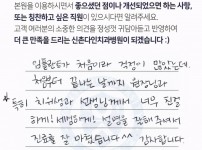 본원을 이용하시면서 좋으셨던 점이나 개선되었으면 하는 사항,
또는 칭찬하고 싶은 직원이 있으시다면 알려주세요.
고객 여러분의 소중한 의견을 정성껏 귀담아듣고 반영하여
더 큰 만족을 드리는 신촌다인치과병원이 되겠습니다 :)
임플란트가 처음이라 걱정이 많았는데,
처음부터 끝나는 날까지 원장님과
특히 치위생과 선생님께서 너무 친절
하게! 세심하게! 설명을 잘해 주셔서
진료를 잘 마쳤습니다^^ 감사합니다.